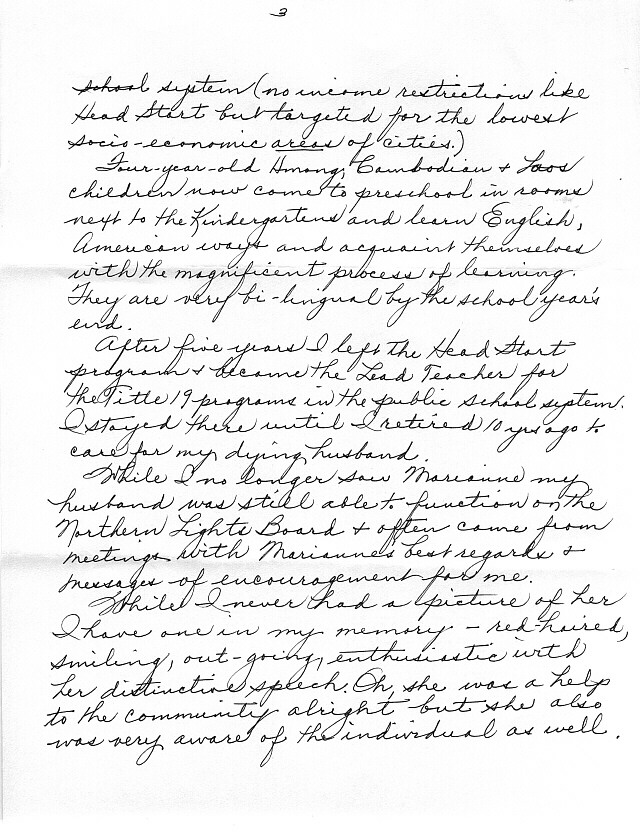 3
school system (no income restrictions like
Head Start but targeted for the lowest
socio-economic areas of cities.)
Four-year-old Hmong, Cambodian & Laos
children now come to preschool in rooms
next to the Kindergartens and learn English,
American ways and acquaint themselves
with the magnificent process of learning.
They are very bi-lingual by the school year's
end.
After five years I left the Head Start
program & became the Lead Teacher for
the Title 19 programs in the public school system.
I stayed there until I retired 10 yrs ago to
care for my dying husband.
While I no longer saw Marianne my
husband was still able to function on the
Northern Lights Board & often came from
meetings with Marianne's best regards &
messages of encouragement for me.
While I never had a picture of her
I have one in my memory - red-haired,
smiling, out-going, enthusiastic with
her distinctive speech. Oh, she was a help
to the community alright but she also
was very aware of the individual as well.